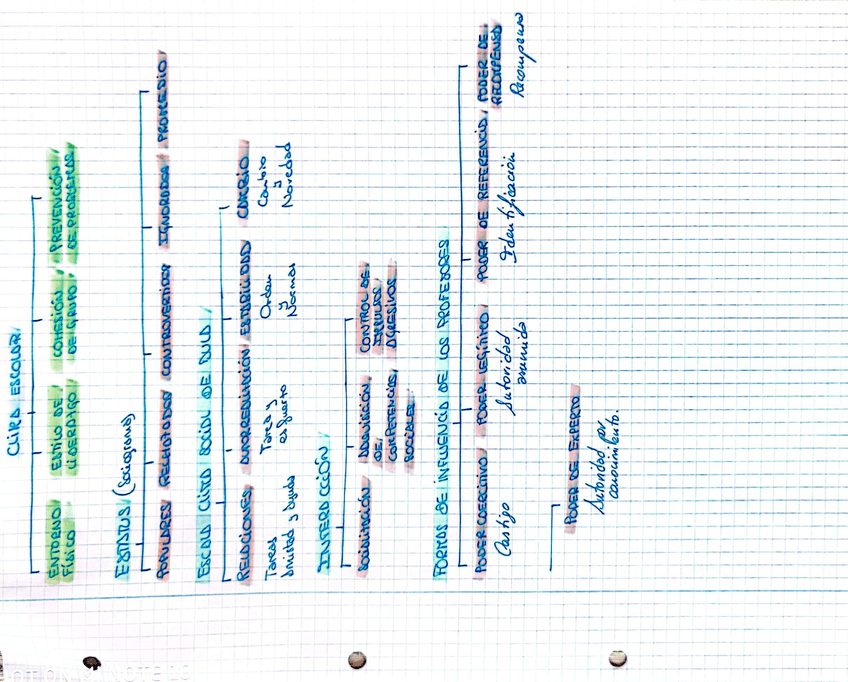 CLIMA ESCOLAR
ENTORNO FÍSICO
ESTILO DE LIDERAZGO
COHESIÓN DE GRUPO
PREVENCIÓN DE PROBLEMAS
ESTATUS (Sociograma)
POPULARES
RECHAZADOS
CONTROVERTIDOS
IGNORADOS
PROMEDIO
ESCALA CLIMA SOCIAL DE AULA
RELACIONES
AUTORREALIZACIÓN
ESTABILIDAD
CAMBIO
Tareas
Amistad y Ayuda
Tarea y
esfuerzo
Orden
y
Normas
Cambio
y
Novedad
INTERACCIÓN
SOCIALIZACIÓN
ADQUISICIÓN
DE
COMPETENCIAS
SOCIALES
CONTROL DE
IMPULSOS
AGRESIVOS
FORMAS DE INFLUENCIA DE LOS PROFESORES
PODER COERCITIVO
PODER LEGÍTIMO
PODER DE REFERENCIA
PODER DE
RECOMPENSA
Castigo
Autoridad
asumida
Identificación
Recompensa
PODER DE EXPERTO
Autoridad por
conocimiento.